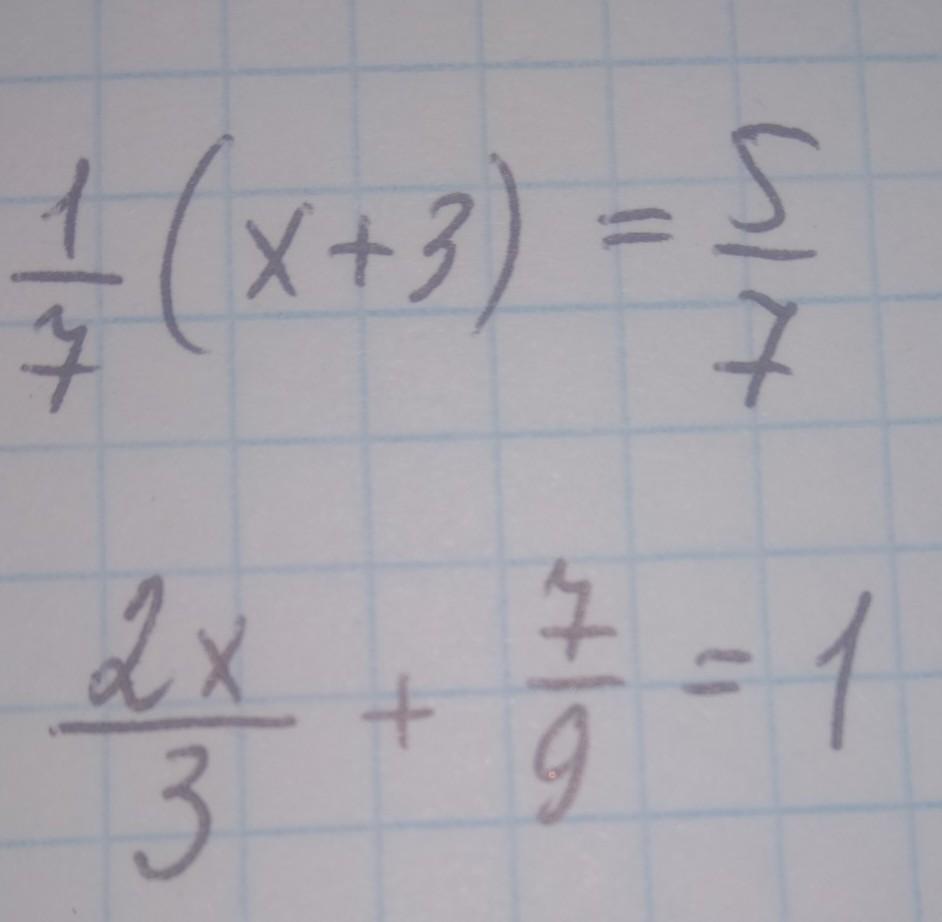 1/7 (x+3) = 5/7
2x/3 + 7/9 = 1